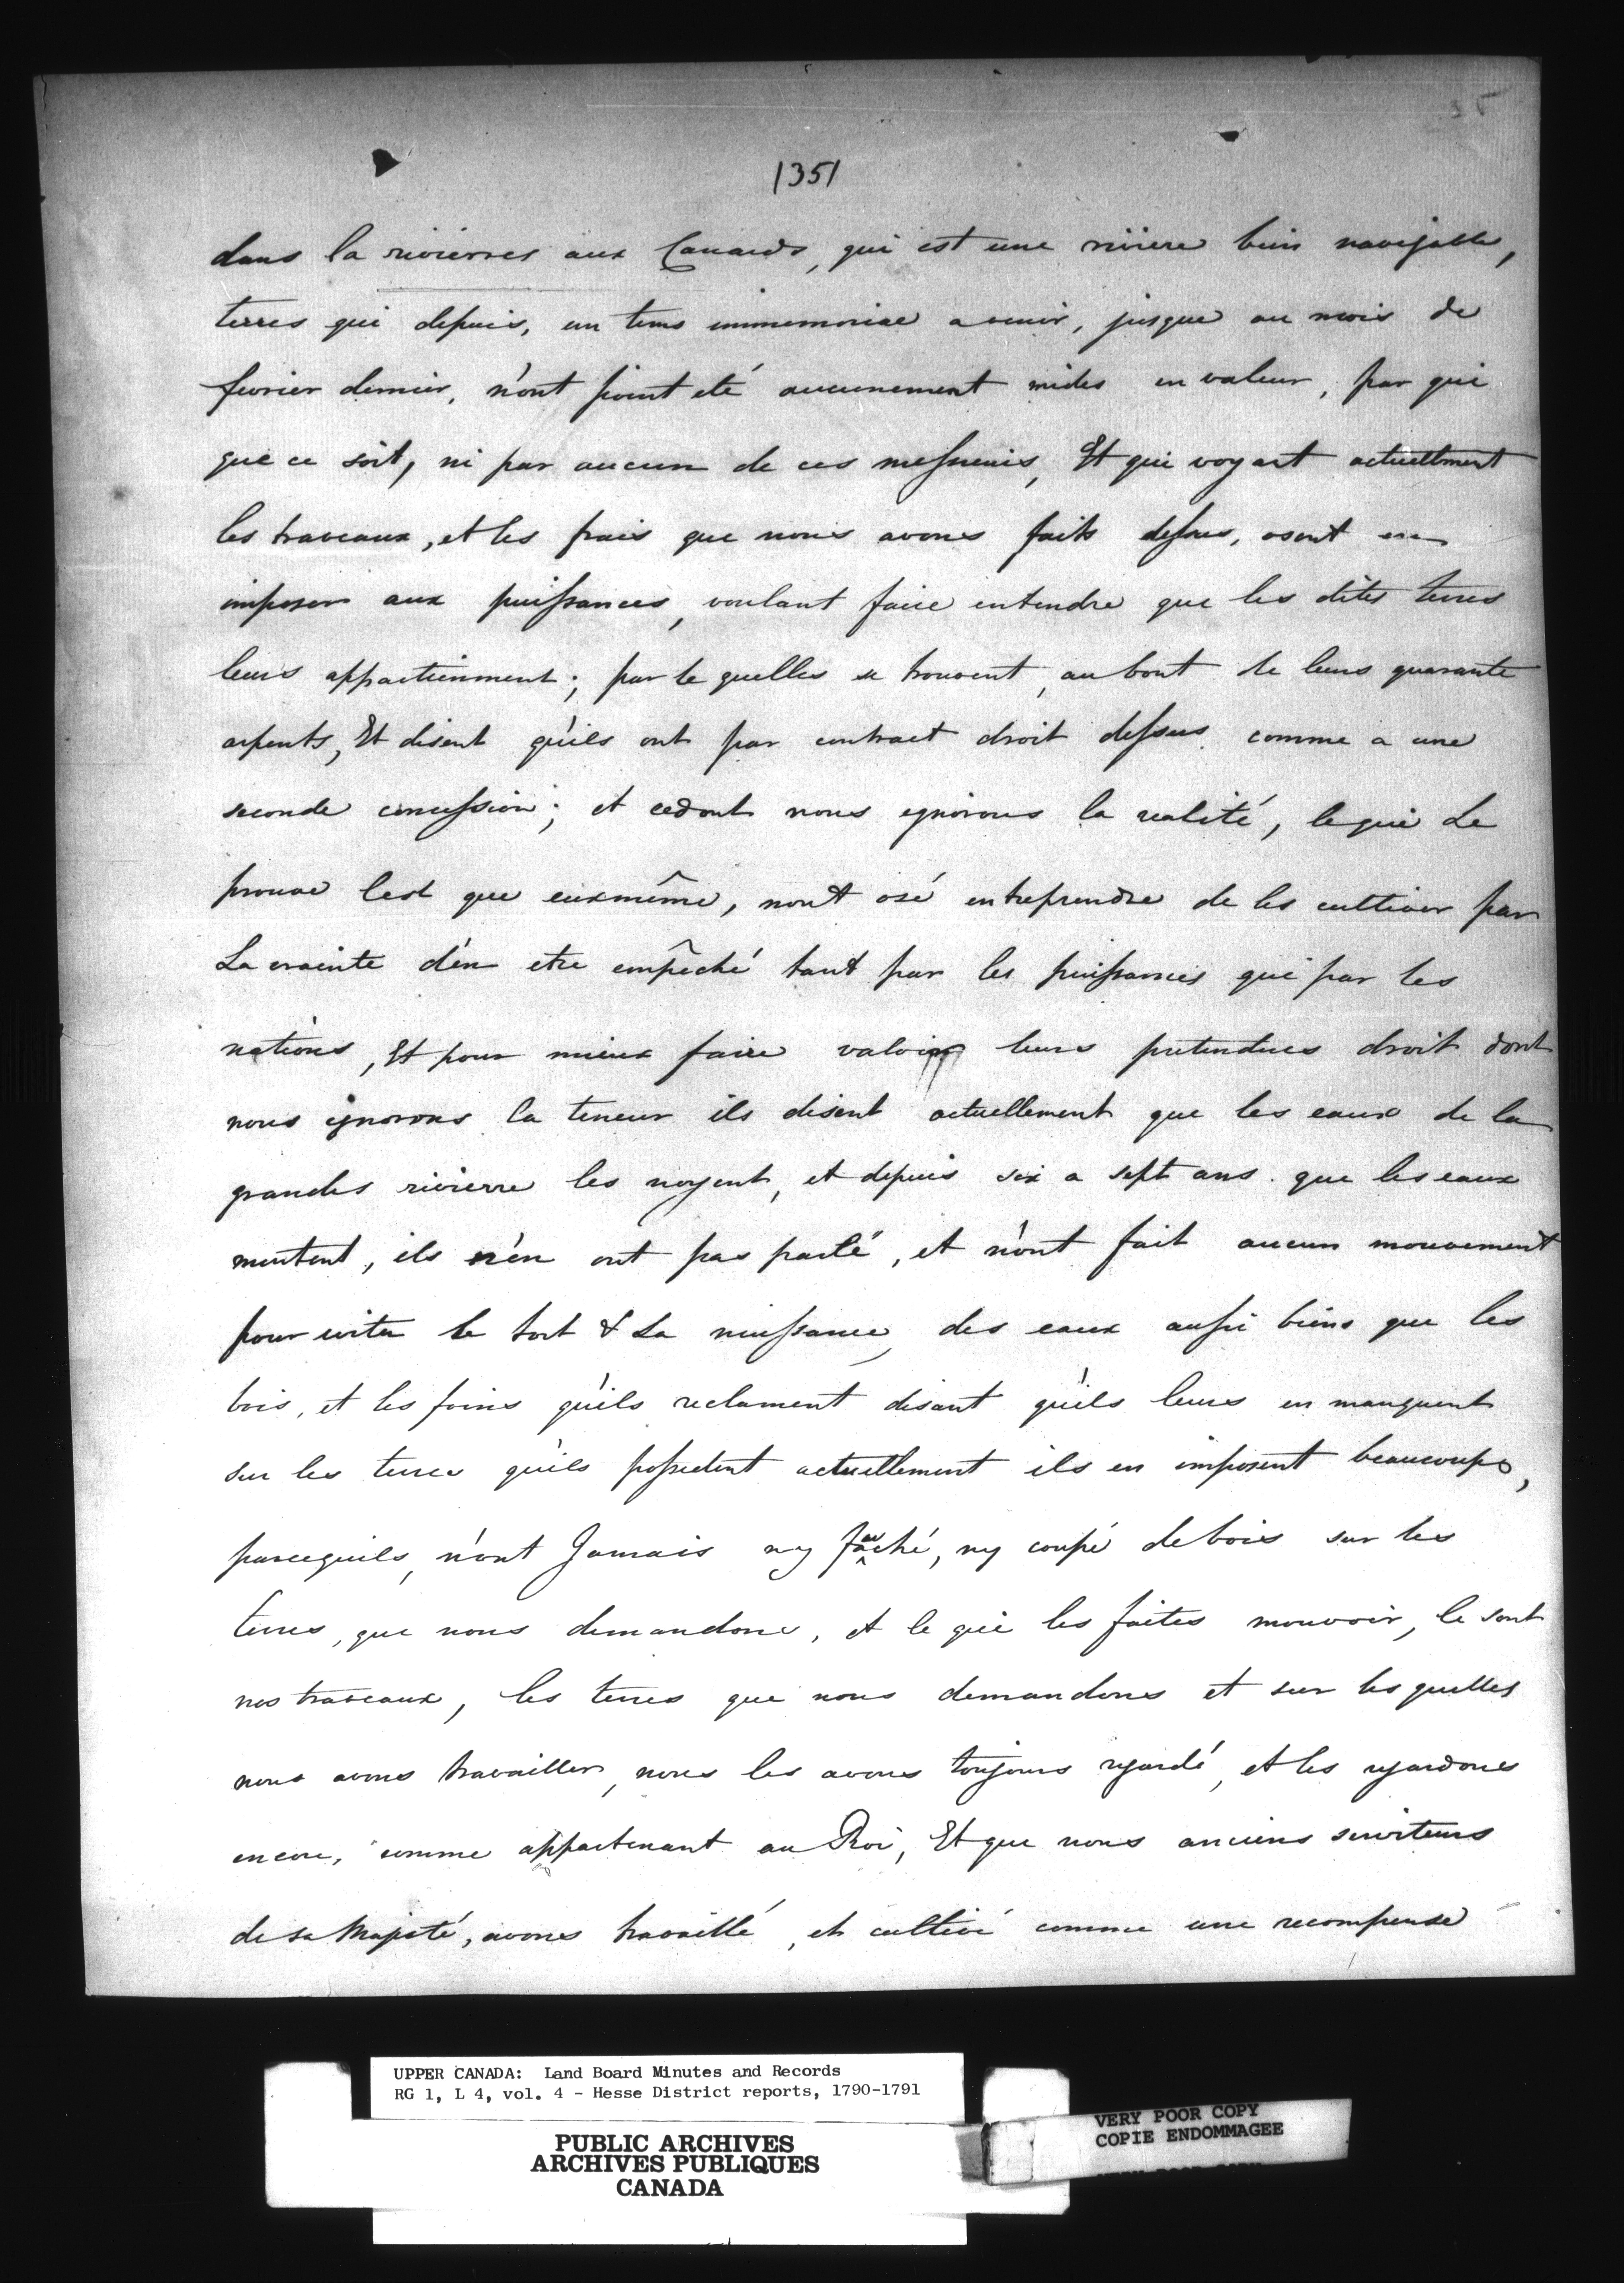 35
1351
dans la rivierres aux Canards, qui est une riviere bien navigable,
terres qui depuis, un tems immemorial a venir, jusque au mois de
fevrier dernier, n'ont point eté aucunement mides en valeur, par qui
que ce soit, ni par aucun de ces messieurs, Et qui voyant actuellment
les traveaux, et les frais que nous avons faits dessus, osent en
imposer aux puissances, voulant faire entendre que les dites terres
leurs appartienment; par le quelles se trouvent, au bout de leurs quarante
arpents, Et disent qu'ils ont par contract droit dessus comme a une
seconde concession; et cedont nous egnorons la realité, lequi Le
prouve Cest que euxmême, nont osé entreprendre de les cultiver par
La crainte d'en etre empêché tant par les puissances que par les
nations, Et pour mieux faire valoir leurs pretendues droit dont
nous egnorons la teneur ils disent actuellement que les eaux de la
grandes rivierre les noyent, et depuis six a sept ans que les eaux
montent, ils n'en ont pas parlé, et n'ont fait aucun mouvement
pour eviter le tort & La nuissance, des eaux aussi biens que les
bois, et les foins qu'ils reclament disant qu'ils leurs en manquent
sur les terres qu'ils possedent actuellement ils en imposent beaucoups,
parcequils, n'ont Jamais ny fauché, ny coupé de bois sur les
terres, que nous demandons, et le qui les faites mouvoir, le sont
nos traveaux, les terres que nous demandons et sur les quelles
nous avons travailler, nous les avons toujours regardé, et les regardons
encore, comme appartenant au Roi, Et que nous anciens serviteurs
de sa Majesté, avons travaillé, et cultivé comme une recompense
UPPER CANADA: Land Board Minutes and Records
RG 1, L 4, vol. 4 - Hesse District reports, 1790-1791
PUBLIC ARCHIVES
ARCHIVES PUBLIQUES
CANADA
VERY POOR COPY
COPIE ENDOMMAGEE